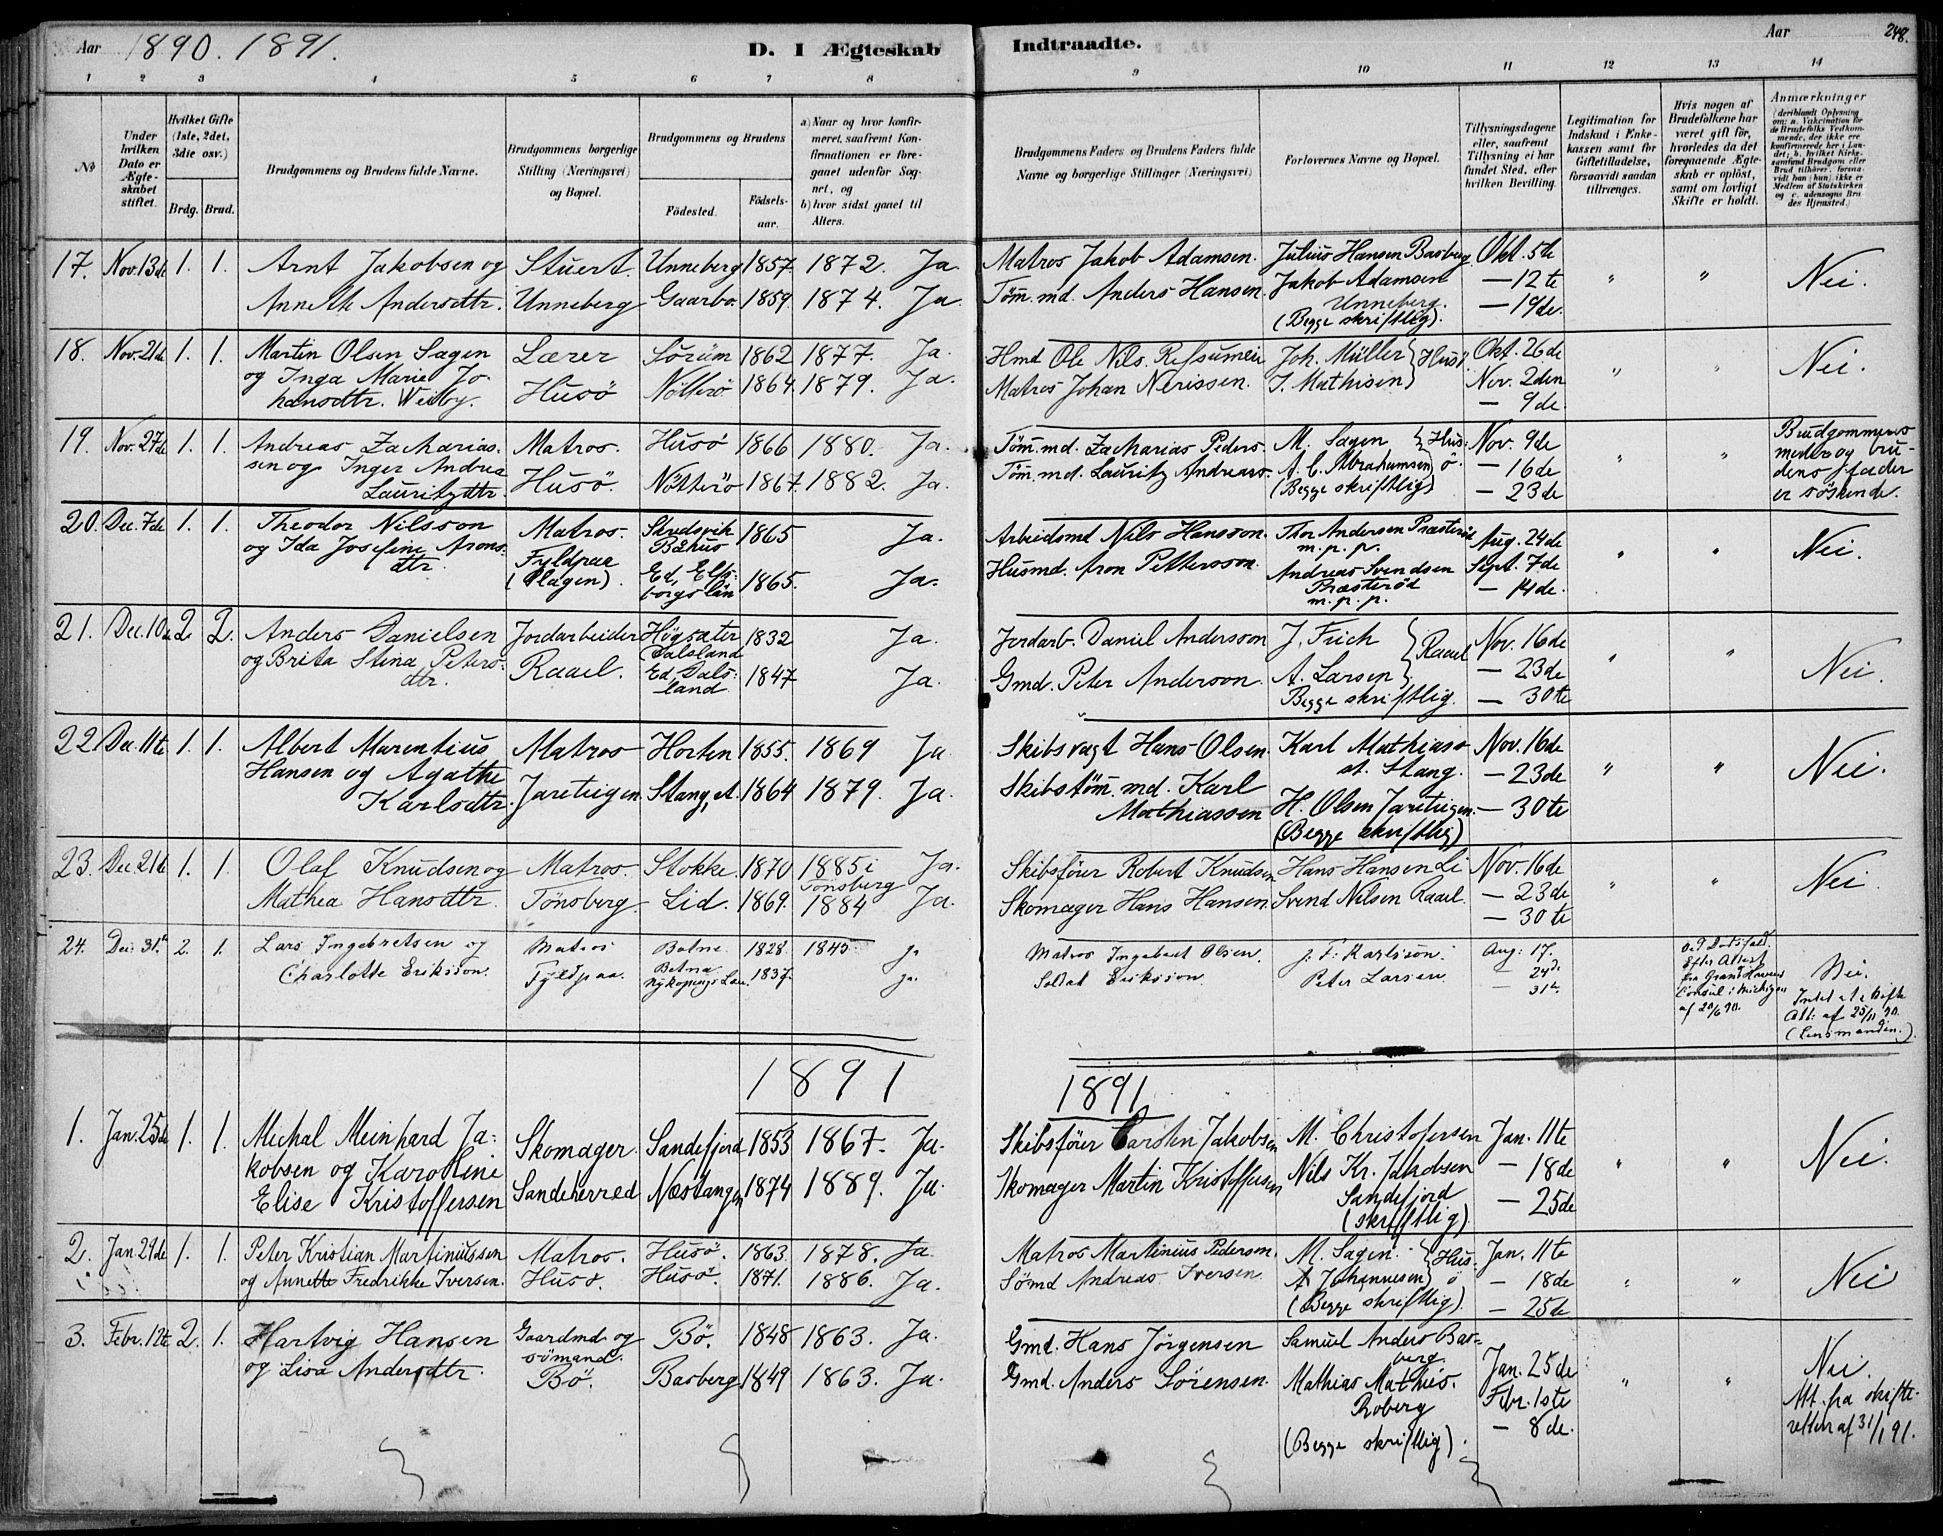 Aar 1890. 1891.
D. I Ægteskab Indtraadte.
Aar 248.
1 2 3 4 5 6 7 8 9 10 11 12 13 14
No
Under hvilken Dato er Ægteskabet stiftet.
Hvilket Gifte (1ste, 2det, 3die osv.)
Brdg. Brud.
Brudgommens og Brudens fulde Navne.
Brudgommens borgerlige Stilling (Næringsvei) og Bopæl.
Brudgommens og Brudens
Fødested.
Fødselsaar.
a) Naar og hvor konfirmeret, saafremt Konfirmationen er foregaaet udenfor Sognet, og
b) hvor sidst gaaet til Alters.
Brudgommens Faders og Brudens Faders fulde Navne og borgerlige Stillinger (Næringsvei)
Forlovernes Navne og Bopæl.
Tillysningsdagene eller, saafremt Tillysning ei har fundet Sted, efter hvilken Bevilling.
Legitimation for Indskud i Enkekassen samt for Giftetilladelse, forsaavidt saadan tiltrænges.
Hvis nogen af Brudefolkene har været gift før, hvorledes da det foregaaende Ægteskab er opløst, samt om lovligt Skifte er holdt.
Anmærkninger
17. Nov. 13de 1. 1. Arnt Jakobsen og Stuert. Unneberg 1857. 1872. Ja. Matros Jakob Adamsen. Julius Hansen Basberg Okt. 5te
Anneth Andersdtr. Unneberg Gaarbo. 1859. 1874. Ja. Tøm.md. Anders Hansen. Jakob Adamsen — 12te " " Nei.
Unneberg. — 19de.
(Begge skriftlig).
18. Nov. 21de 1. 1. Martin Olsen Sagen Lærer Sørum 1862 1877. Ja. Hmd Ole Nils. Joh. Müller } Husö Okt. 26de
og Inga Marie Jo- Husö Nötterö 1864. 1879. Ja. Matros Johan Nerissen. S. Mathisen Nov. 2den " " Nei.
hansdtr. Weiby. — 9de.
19. Nov. 27de 1. 1. Andreas Zacharias- Matros. Husö 1866 1880. Ja. Tøm.md. Zacharias Peders. M. Sagen } Hus- Nov. 9de Brudgommens
sen og Inger Andrea Husö. Nötterö 1867. 1882. Ja. Tøm.md. Lauritz Andreass. A. C. Abrahamsen ö. — 16de " " moder og bru-
Lauritzdtr. (Begge skriftlig) — 23de dens fader
er söskende.
20. Dec. 7de 1. 1. Theodor Nilsson Matros. Skredsvik Båhus 1865 Ja. Arbeidsmd Nils Hansson. Thor Andersen Præsterød m.p.p. Aug. 24de
og Ida Josefine Arons- Fyldpaa Ed, Elfs- 1865. Ja. Husmd. Aron Pettersson. Andreas Svendsen Sept. 7de " " Nei.
dtr. (Slagen). borgs län Præsterød m.p.p. — 14de.
21. Dec. 10de 2. 2. Anders Danielsen Jordarbeider Högsäter Dalsland 1832 Ja. Jordarb. Daniel Andersson J. Frich } Raael Nov. 16de
og Brita Stina Peters- Raael. Ed Dals- 1847 Ja. Gmd. Peter Anderson. A. Larsen — 23de " " Nei.
dtr. land Begge skriftlig. — 30te
22. Dec. 11te 1. 1. Albert Marentius Matros Horten 1855. 1869 Ja Skibsvagt Hans Olsen. Karl Mathiass Nov. 16de
Hansen og Agathe Jareteigen Stang, st. 1864 1879. Ja. Skibstøm.md. Karl st. Stang. — 23de " " Nei.
Karlsdtr. Mathiassen H. Olsen Jareteigen. — 30te
(Begge skriftlig)
23. Dec. 21de 1. 1. Olaf Knudsen og Matros. Stokke. 1870 1885 i Tønsberg Ja. Skibsfører Robert Knudsen Hans Hansen Li Nov. 16de
Mathea Hansdtr. Tönsberg. Lid. 1869. 1884 Ja. Skomager Hans Hansen. Svend Nilsen Raael. — 23de " " Nei.
— 30te
24. Dec. 31te 2. 1. Lars Ingebretsen og Matros Botne. 1828. 1845. ja Matros Ingebret Olsen. J. F. Karlsson. Aug: 17.
Charlotte Eriksson. Fyldpaa. Betna Nykøpings Län. 1837. ja. Soldat Eriksson. Peter Larsen. — 24de Nei.
— 31te
ved Dødsfald. Efter Attest fra Grand Haven Consul i Michigan af 20/6 90.
Intet at skifte Att: af 25/11 90. (Lensmanden.)
1891 1891
1. Jan. 25de 1. 1. Michal Meinhard Ja- Skomager. Sandefjord 1853 1867. Ja. Skibsfører Carsten Jakobsen M. Christofersen Jan. 11te
kobsen og Karoline Sandeherred Næstangen 1874 1889. Ja. Skomager Martin Kristoffersen Nils Kr. Jakobsen — 18de " " Nei.
Elise Kristoffersen Sandefjord — 25de
(skriftlig)
2. Jan. 29de 1. 1. Peter Kristian Martinussen Matros. Husö. 1863. 1878. Ja. Matros Martinius Pedersen. M. Sagen. } Hus- Jan. 11te
og Annette Fredrikke Iversen. Husö. Husö. 1871. 1886. Ja. Sømd Andreas Iversen. A Johannesen ö — 18de " " Nei
(Begge skriftlig). — 25de
3. Febr. 12te 2. 1. Hartvig Hansen Gaardmd og sömand. Bö. 1848 1863. Ja. Gmd. Hans Jörgensen Samuel Anders Bas-
og Lisa Andersdtr. Bö. Basberg 1849 1863. Ja. Gmd. Anders Sörensen. berg Jan. 25de Nei.
Mathias Mathis. Febr. 1ste " " Att. fra skifte-
Roberg — 8de. retten af 31/1 91.
(Begge skriftlig).